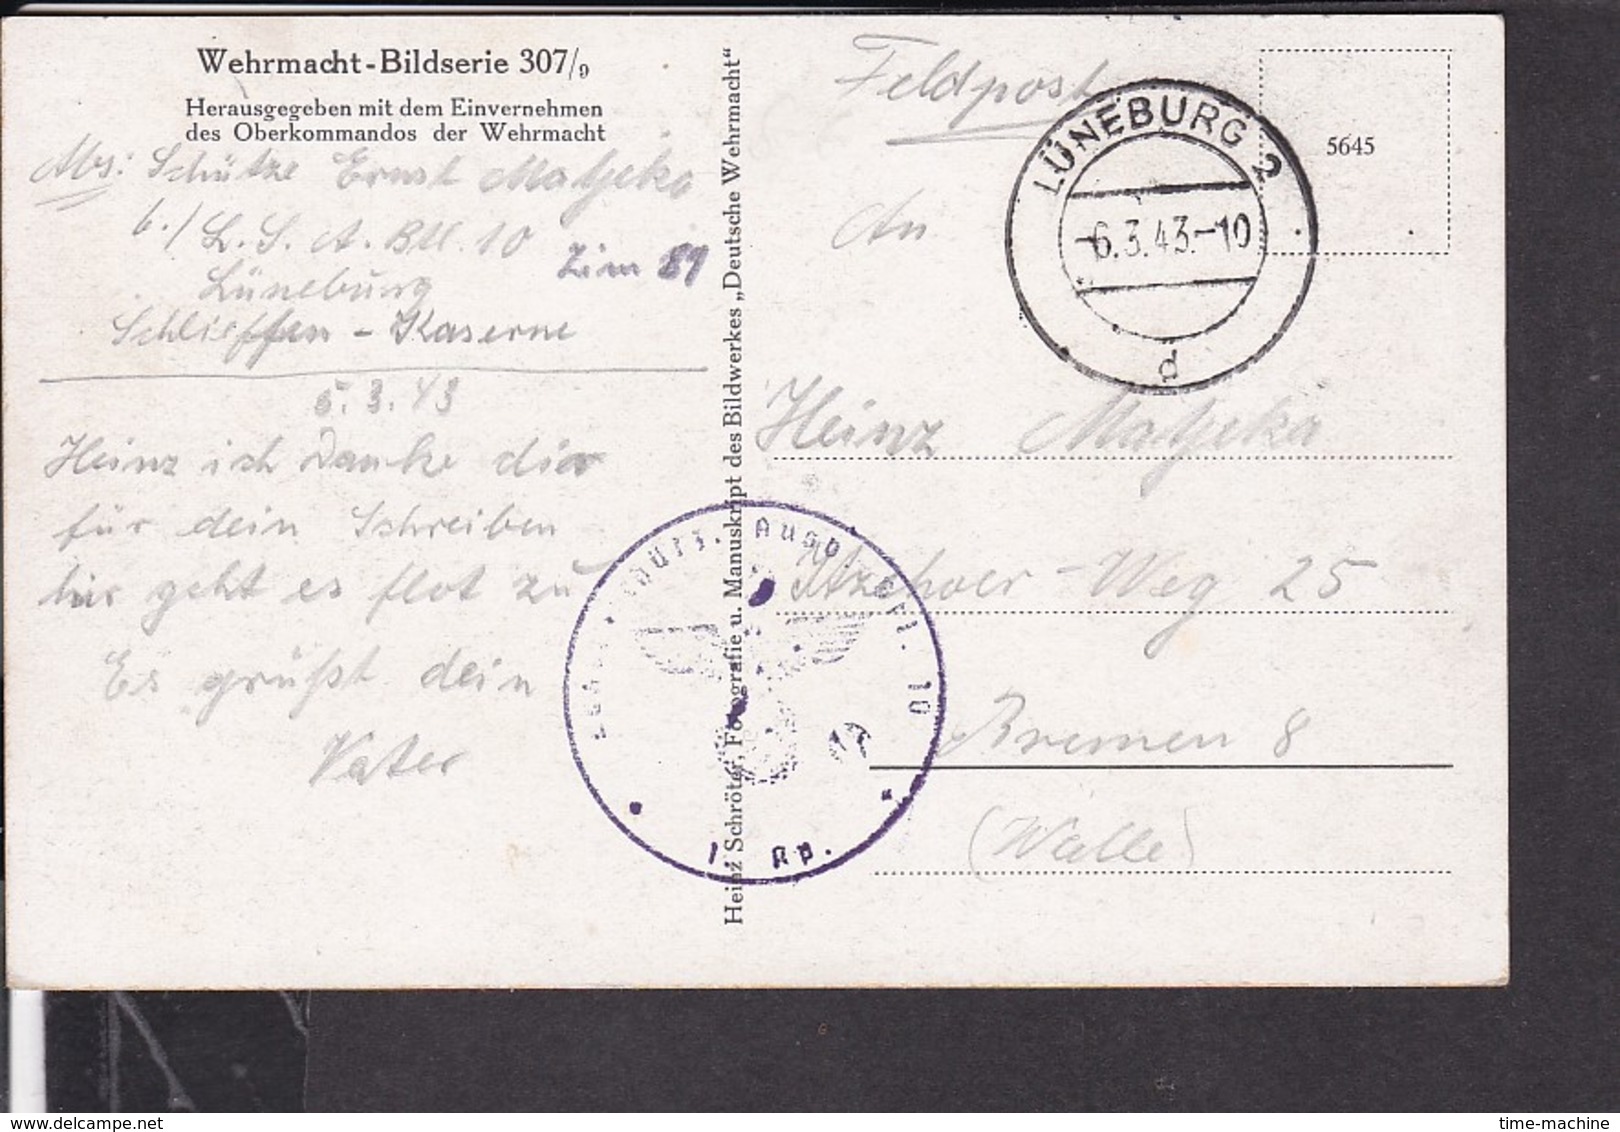 Wehrmacht-Bildserie 307/9
Herausgegeben mit dem Einvernehmen
des Oberkommandos der Wehrmacht
Abs: Schütze Ernst Matzeka
6./ L. S. A. Btl. 10
Zim 89
Lüneburg
Schlieffen - Kaserne
5.3.43
Heinz ich Danke dir
für dein Schreiben
hir geht es flot zu
Es grüßt dein
Vater
Heinz Schröter, Fotografie u. Manuskript des Bildwerkes „Deutsche Wehrmacht“
Feldpost
LÜNEBURG 2
-6.3.43.-10
d
5645
An
Heinz Matzeka
Itzehoer - Weg 25
Bremen 8
(Walle)
10
Kp.
time-machine